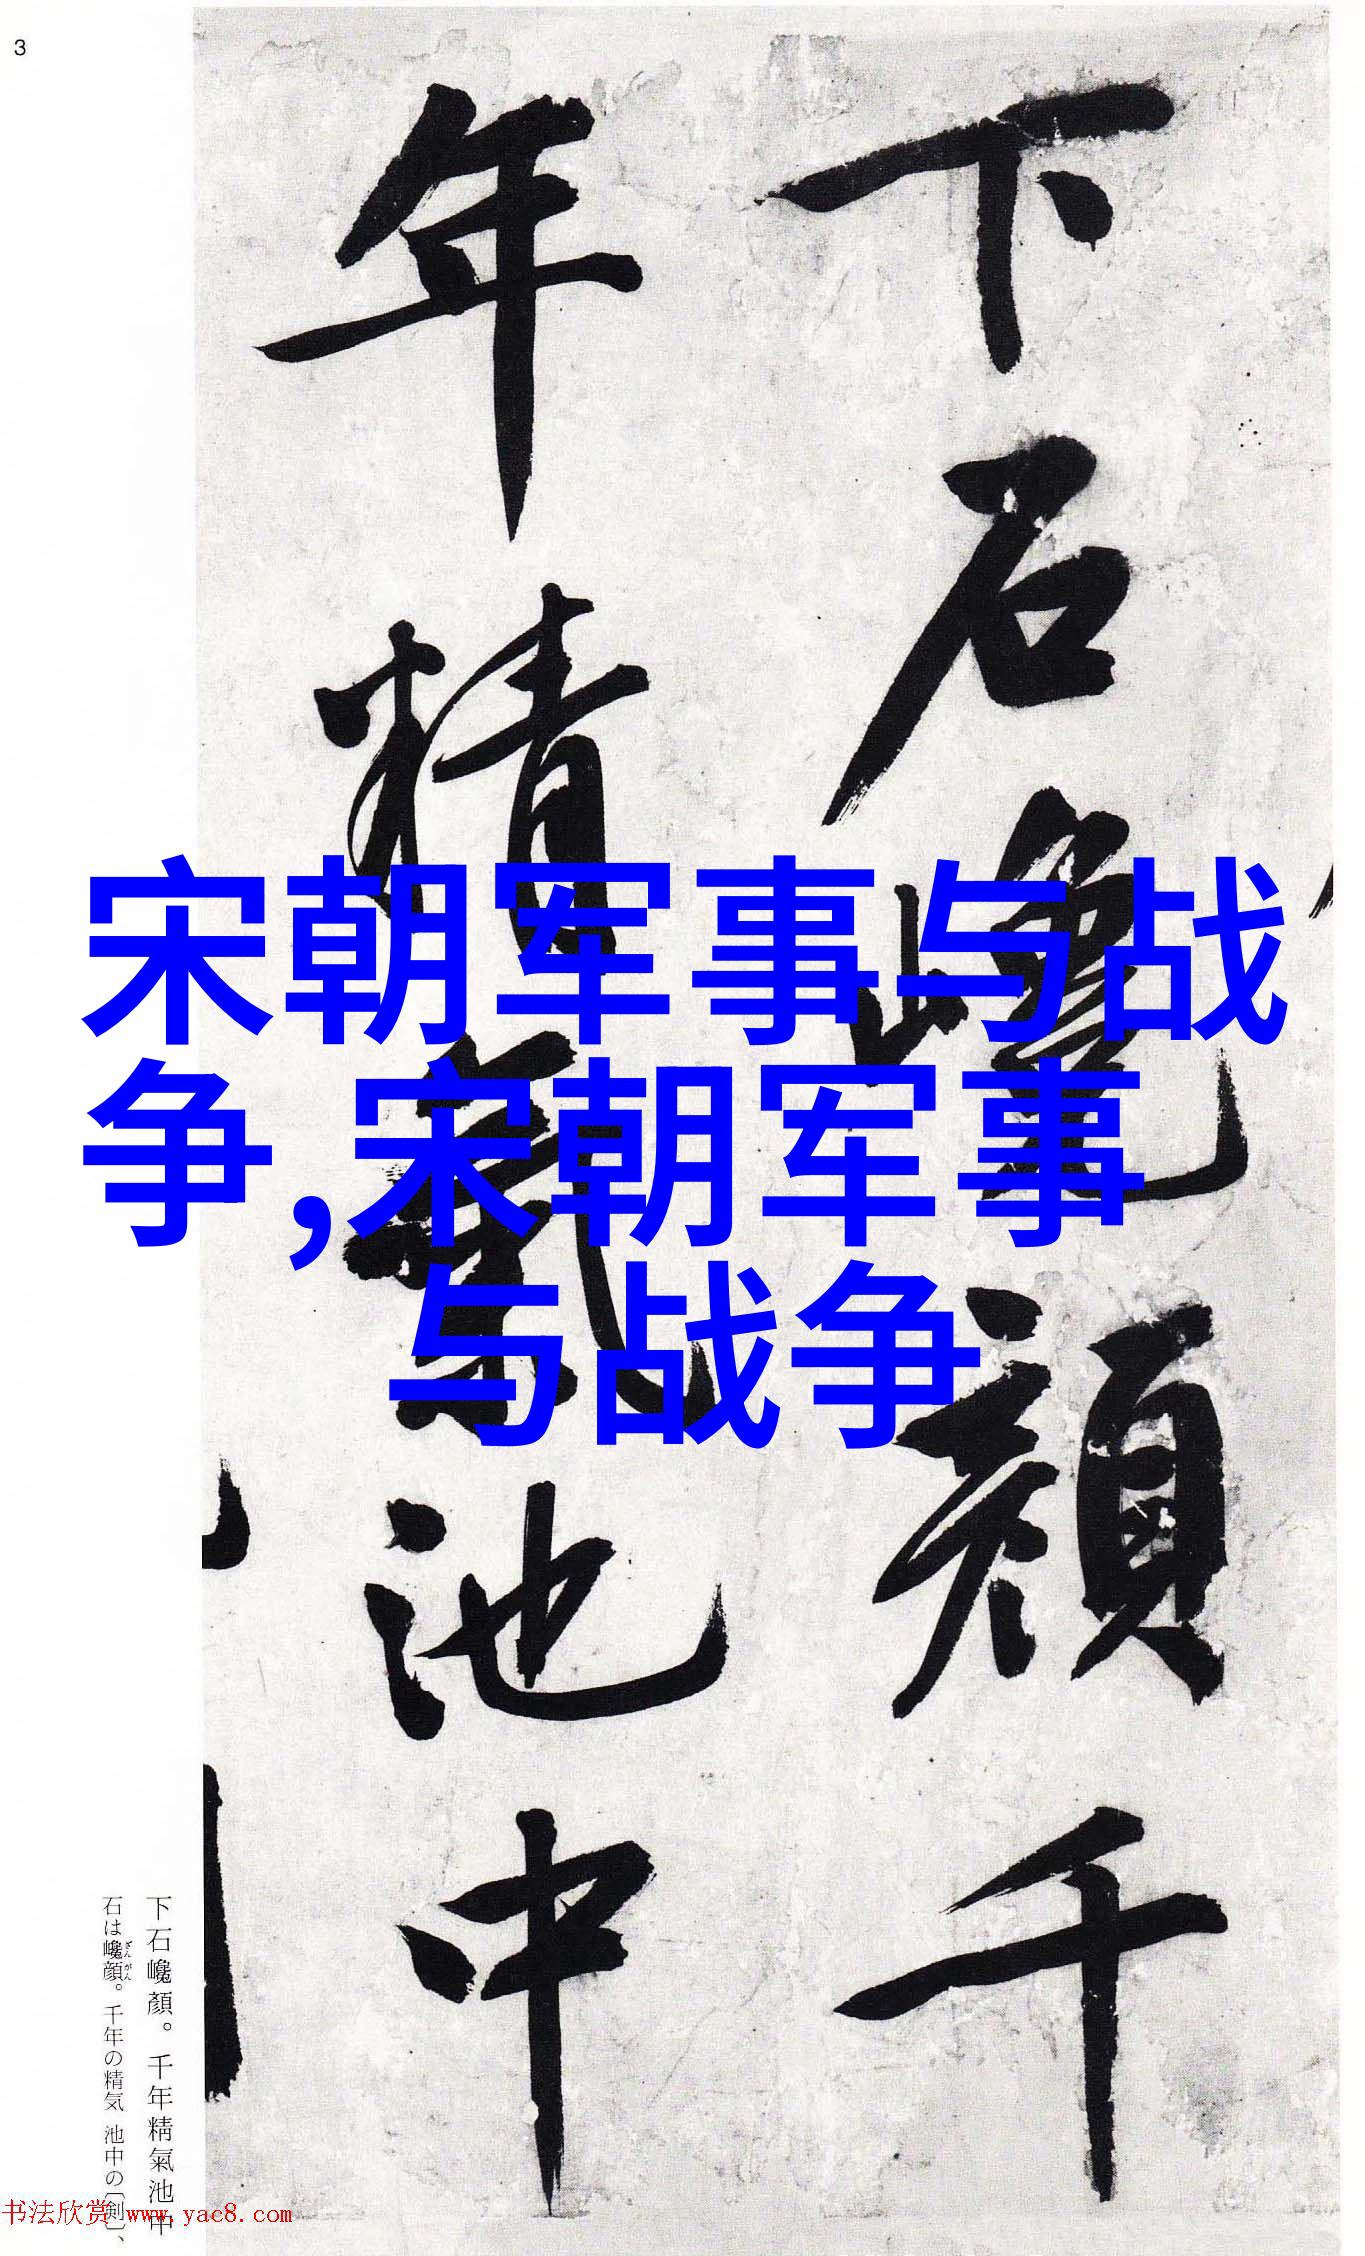 3
下石巉顔千
年精氣池中
宋朝军事与战
争,宋朝军事
与战争
下石巉顏。千年精氣池中
石は巉顔。千年の精気 池中の〔剣〕、
ざんがん
书法欣赏 www.yac8.com